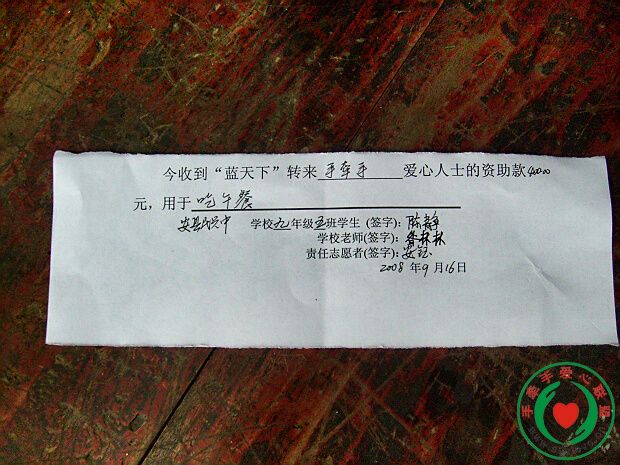 今收到“蓝天下”转来 手牵手 爱心人士的资助款400.00
元，用于 吃午餐
安县 中 学校九年级五班学生（签字）：陈静
学校老师(签字)： 林林
责任志愿者(签字)：安
2008年9月16日
手牵手爱心联盟